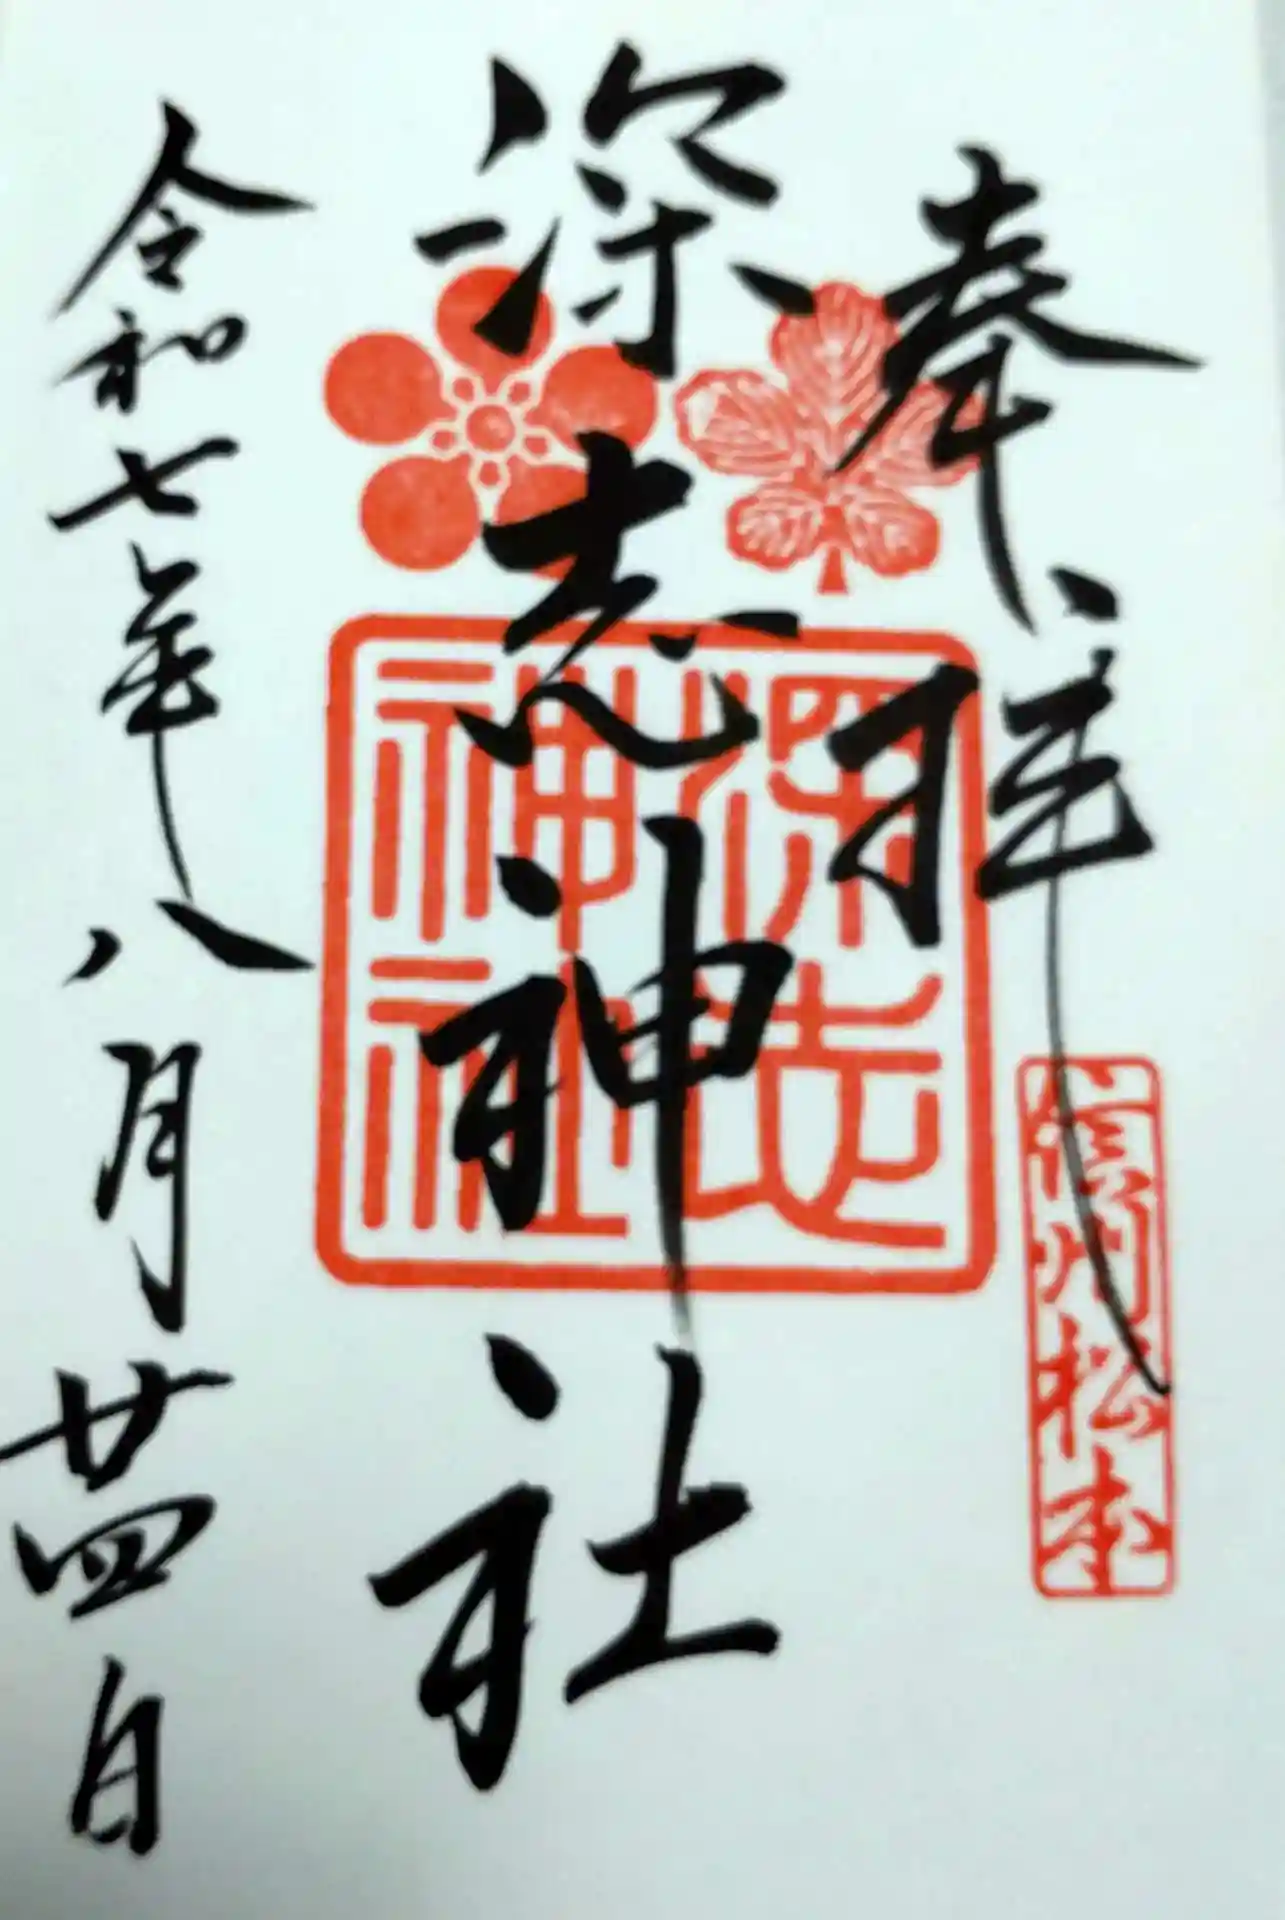 奉拝
信州松本
深志神社
深志
神社
令和七年八月廿四日